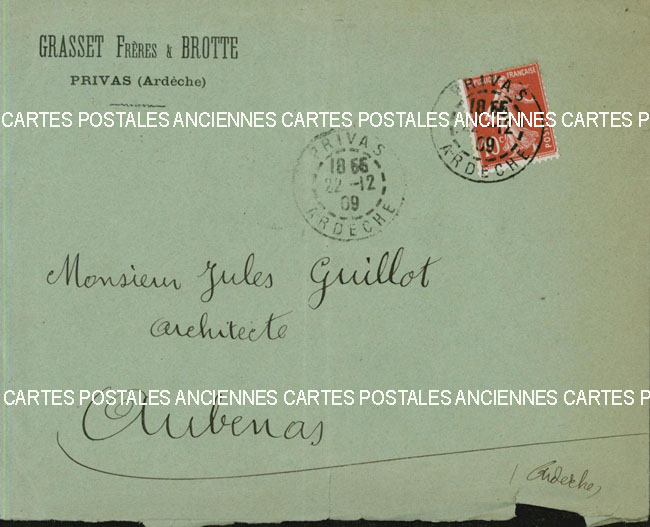 GRASSET FRÈRES & BROTTE
PRIVAS (Ardèche)
PRIVAS
18 55
22-12
09
ARDECHE
POSTES
FRANÇAISE
10c
PRIVAS
18 55
22-12
09
ARDECHE
CARTES POSTALES ANCIENNES CARTES POSTALES ANCIENNES CARTES P
Monsieur Jules Guillot
architecte
CARTES POSTALES ANCIENNES CARTES POSTALES ANCIENNES CARTES P
Aubenas
(Ardèche)